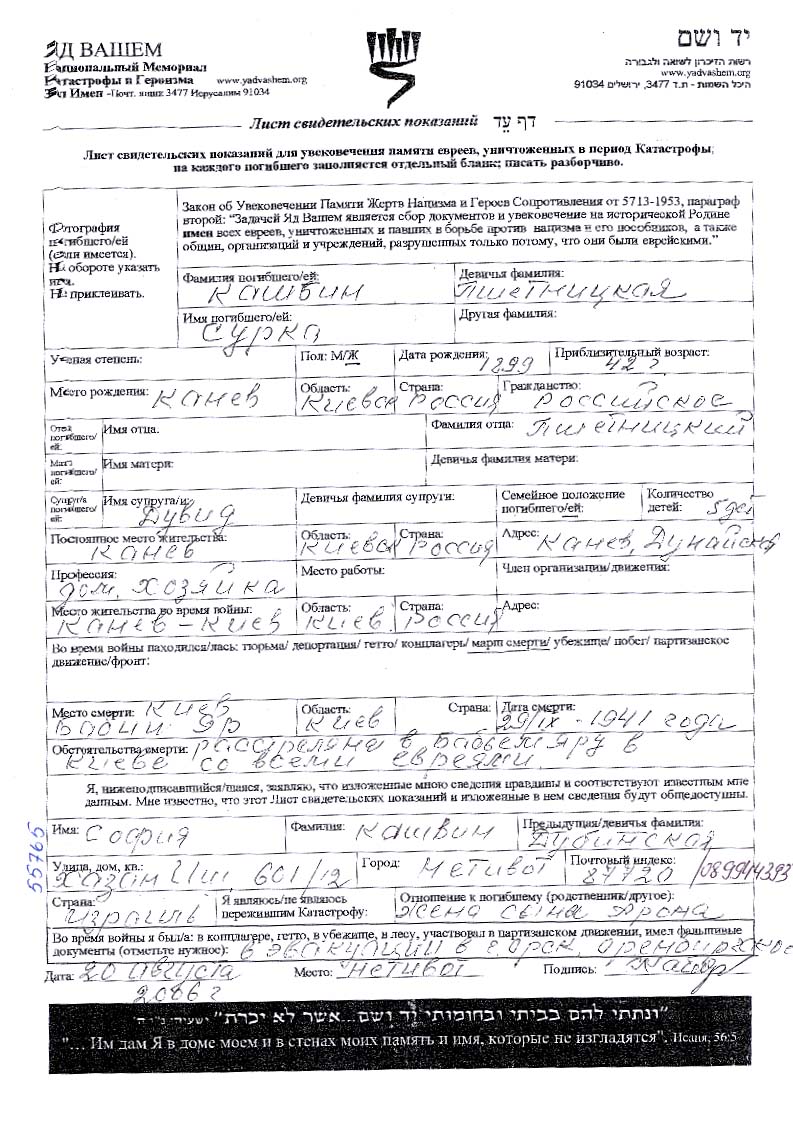 ЯД ВАШЕМ
Национальный Мемориал
Катастрофы и Героизма www.yadvashem.org
Зал Имен -Почт. ящик 3477 Иерусалим 91034
יד ושם
רשות הזיכרון לשואה ולגבורה
www.yadvashem.org
היכל השמות - ת.ד 3477, ירושלים 91034
Лист свидетельских показаний דף עֵד
Лист свидетельских показаний для увековечения памяти евреев, уничтоженных в период Катастрофы;
на каждого погибшего заполняется отдельный бланк; писать разборчиво.
Фотография
погибшего/ей
(если имеется).
На обороте указать
имя.
Не приклеивать.
Закон об Увековечении Памяти Жертв Нацизма и Героев Сопротивления от 5713-1953, параграф
второй: "Задачей Яд Вашем является сбор документов и увековечение на исторической Родине
имен всех евреев, уничтоженных и павших в борьбе против нацизма и его пособников, а также
общин, организаций и учреждений, разрушенных только потому, что они были еврейскими."
Фамилия погибшего/ей: Кашвин
Девичья фамилия: Пшетницкая
Имя погибшего/ей: Сурка
Другая фамилия:
Ученая степень:
Пол: М/Ж
Дата рождения: 1899
Приблизительный возраст: 42 г
Место рождения: Канев
Область: Киевск
Страна: Россия
Гражданство: Российское
Отец погибшего/ей:
Имя отца:
Фамилия отца: Пшетницкий
Мать погибшего/ей:
Имя матери:
Девичья фамилия матери:
Супруг/а погибшего/ей:
Имя супруга/и: Дувид
Девичья фамилия супруги:
Семейное положение погибшего/ей:
Количество детей: 5 дет
Постоянное место жительства: Канев
Область: Киевск
Страна: Россия
Адрес: Канев, Дунайск
Профессия: дом. хозяйка
Место работы:
Член организации/движения:
Место жительства во время войны: Канев - Киев
Область: Киев
Страна: Россия
Адрес:
Во время войны находился/лась: тюрьма/ депортация/ гетто/ концлагерь/ марш смерти/ убежище/ побег/ партизанское
движение/фронт:
Место смерти: Киев Бабий Яр
Область: Киев
Страна:
Дата смерти: 29/IX - 1941 года
Обстоятельства смерти: расстреляна в Бабьем яру в
Киеве со всеми евреями.
Я, нижеподписавшийся/шаяся, заявляю, что изложенные мною сведения правдивы и соответствуют известным мне
данным. Мне известно, что этот Лист свидетельских показаний и изложенные в нем сведения будут общедоступны.
55765
Имя: София
Фамилия: Кашвин
Предыдущая/девичья фамилия: Дубинская
Улица, дом, кв.: Хазан 601/12
Город: Нетивот
Почтовый индекс: 87720 /089944393
Страна: Израиль
Я являюсь/не являюсь пережившим Катастрофу:
Отношение к погибшему (родственник/другое): Жена сына Арона
Во время войны я был/а: в концлагере, гетто, в убежище, в лесу, участвовал в партизанском движении, имел фальшивые
документы (отметьте нужное): в эвакуации в г. Орск,
Дата: 20 августа 2006 г
Место: Нетивот
Подпись:
"ונתתי להם בביתי ובחומותי יד ושם...אשר לא יכרת" ישעיהו נ"ו ה'
"... Им дам Я в доме моем и в стенах моих память и имя, которые не изгладятся". Исаия, 56:5